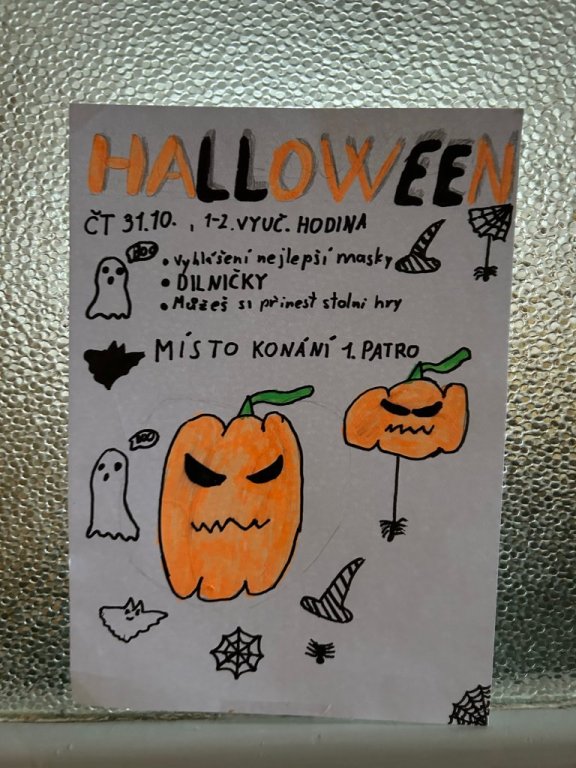 HALLOWEEN
ČT 31.10. , 1-2. VYUČ. HODINA
BOO
• Vyhlášení nejlepší masky
• DÍLNIČKY
• Můžeš si přinest stolní hry
MÍSTO KONÁNÍ 1. PATRO
BOO